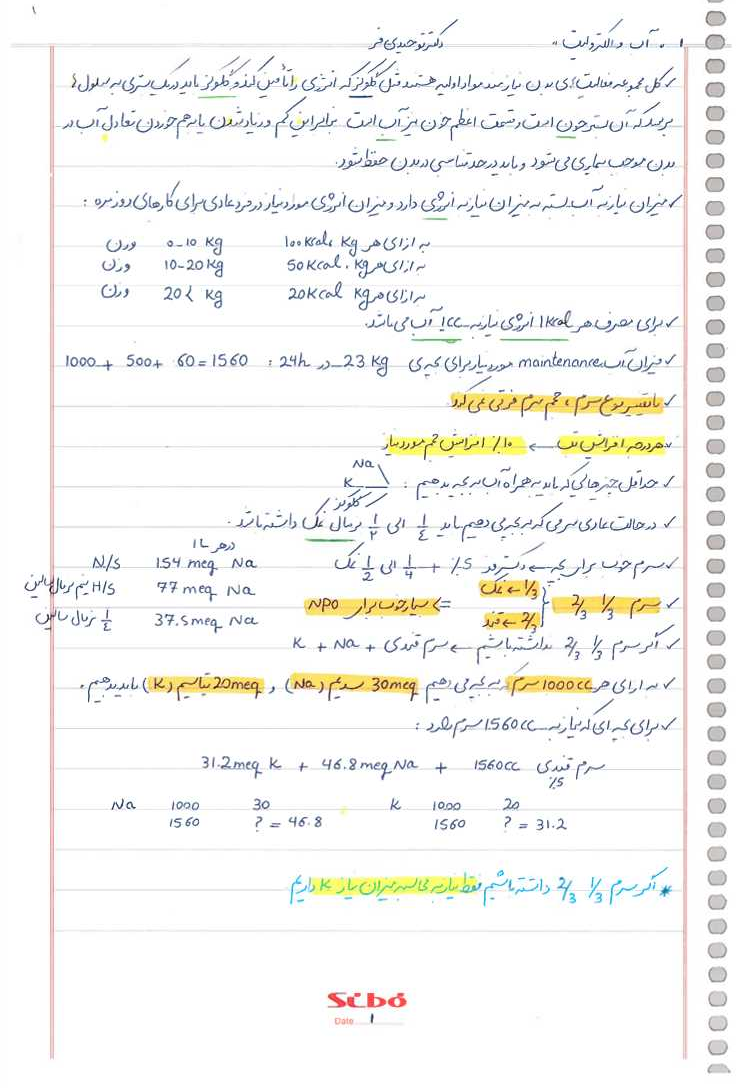 ۱
۱. آب و الکترولیت " دکتر توحیدی فر
✓ کل مجموعه فعالیت های بدن نیازمند مواد اولیه هستند مثل گلوکز که انرژی را تأمین کند و گلوکز باید در یک بستری به سلول ها
برسد که آن بستر خون است و قسمت اعظم خون نیز آب است بنابراین کم و زیاد شدن یا به هم خوردن تعادل آب در
بدن موجب بیماری می شود و باید در حد تناسبی در بدن حفظ شود.
✓ میزان نیاز به آب بسته به میزان نیاز به انرژی دارد و میزان انرژی مورد نیاز در فرد عادی برای کارهای روزمره :
به ازای هر Kg 100 Kcal وزن 0-10 Kg
به ازای هر Kg 50 Kcal وزن 10-20 Kg
به ازای هر Kg 20 Kcal وزن 20< Kg
✓ برای مصرف هر 1 Kcal انرژی نیاز به 1cc آب می باشد.
✓ میزان آب maintenance مورد نیاز برای بچه ی 23 Kg در 24h : 1000 + 500 + 60 = 1560
✓ با تغییر نوع سرم ، حجم سرم فرقی نمی کند.
✓ هر درجه افزایش تب ← ۱۰٪ افزایش حجم مورد نیاز
✓ حداقل چیزهایی که باید به همراه آب به بچه بدهیم : Na
K
گلوکز
✓ در حالت عادی سرمی که به بچه می دهیم باید 1/4 الی 1/2 نرمال نمک داشته باشد.
✓ سرم خوب برای بچه ← دکستروز 5٪ + 1/4 الی 1/2 نمک
در هر 1L
N/S 154 meq Na
H/S نیم نرمال سالین 77 meq Na
1/4 نرمال سالین 37.5 meq Na
✓ سرم 1/3 2/3 { 1/3 ← نمک
2/3 ← قند
=> بسیار خوب برای NPO
✓ اگر سرم 1/3 2/3 نداشته باشیم ← سرم قندی + K + Na
✓ به ازای هر 1000cc سرم که به بچه می دهیم 30 meq سدیم (Na) و 20 meq پتاسیم (K) باید بدهیم.
✓ برای بچه ای که نیاز به 1560 cc سرم دارد :
سرم قندی 5٪ 1560cc + 46.8 meq Na + 31.2 meq K
Na 1000 30 K 1000 20
1560 ? = 46.8 1560 ? = 31.2
* اگر سرم 1/3 2/3 داشته باشیم فقط نیاز به محاسبه میزان نیاز K داریم
Sibo
Date 1